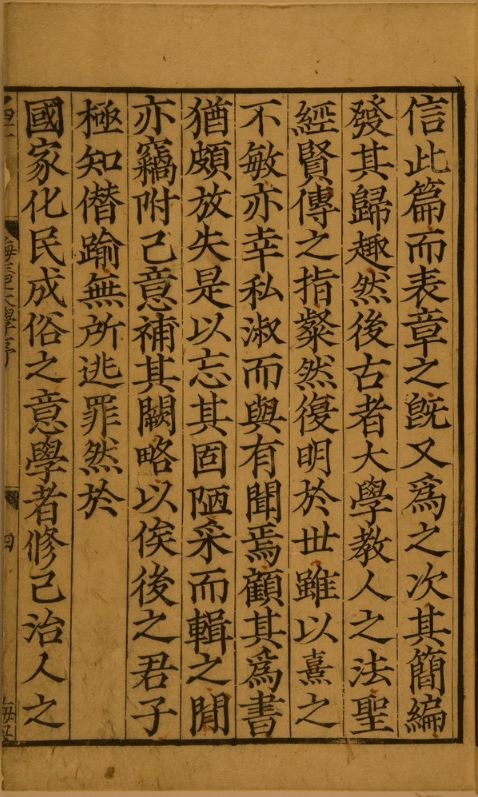 信此篇而表章之旣又爲之次其簡編
發其歸趣然後古者大學教人之法聖
經賢傳之指粲然復明於世雖以熹之
不敏亦幸私淑而與有聞焉顧其爲書
猶頗放失是以忘其固陋采而輯之閒
亦竊附己意補其闕略以俟後之君子
極知僭踰無所逃罪然於
國家化民成俗之意學者修己治人之
四